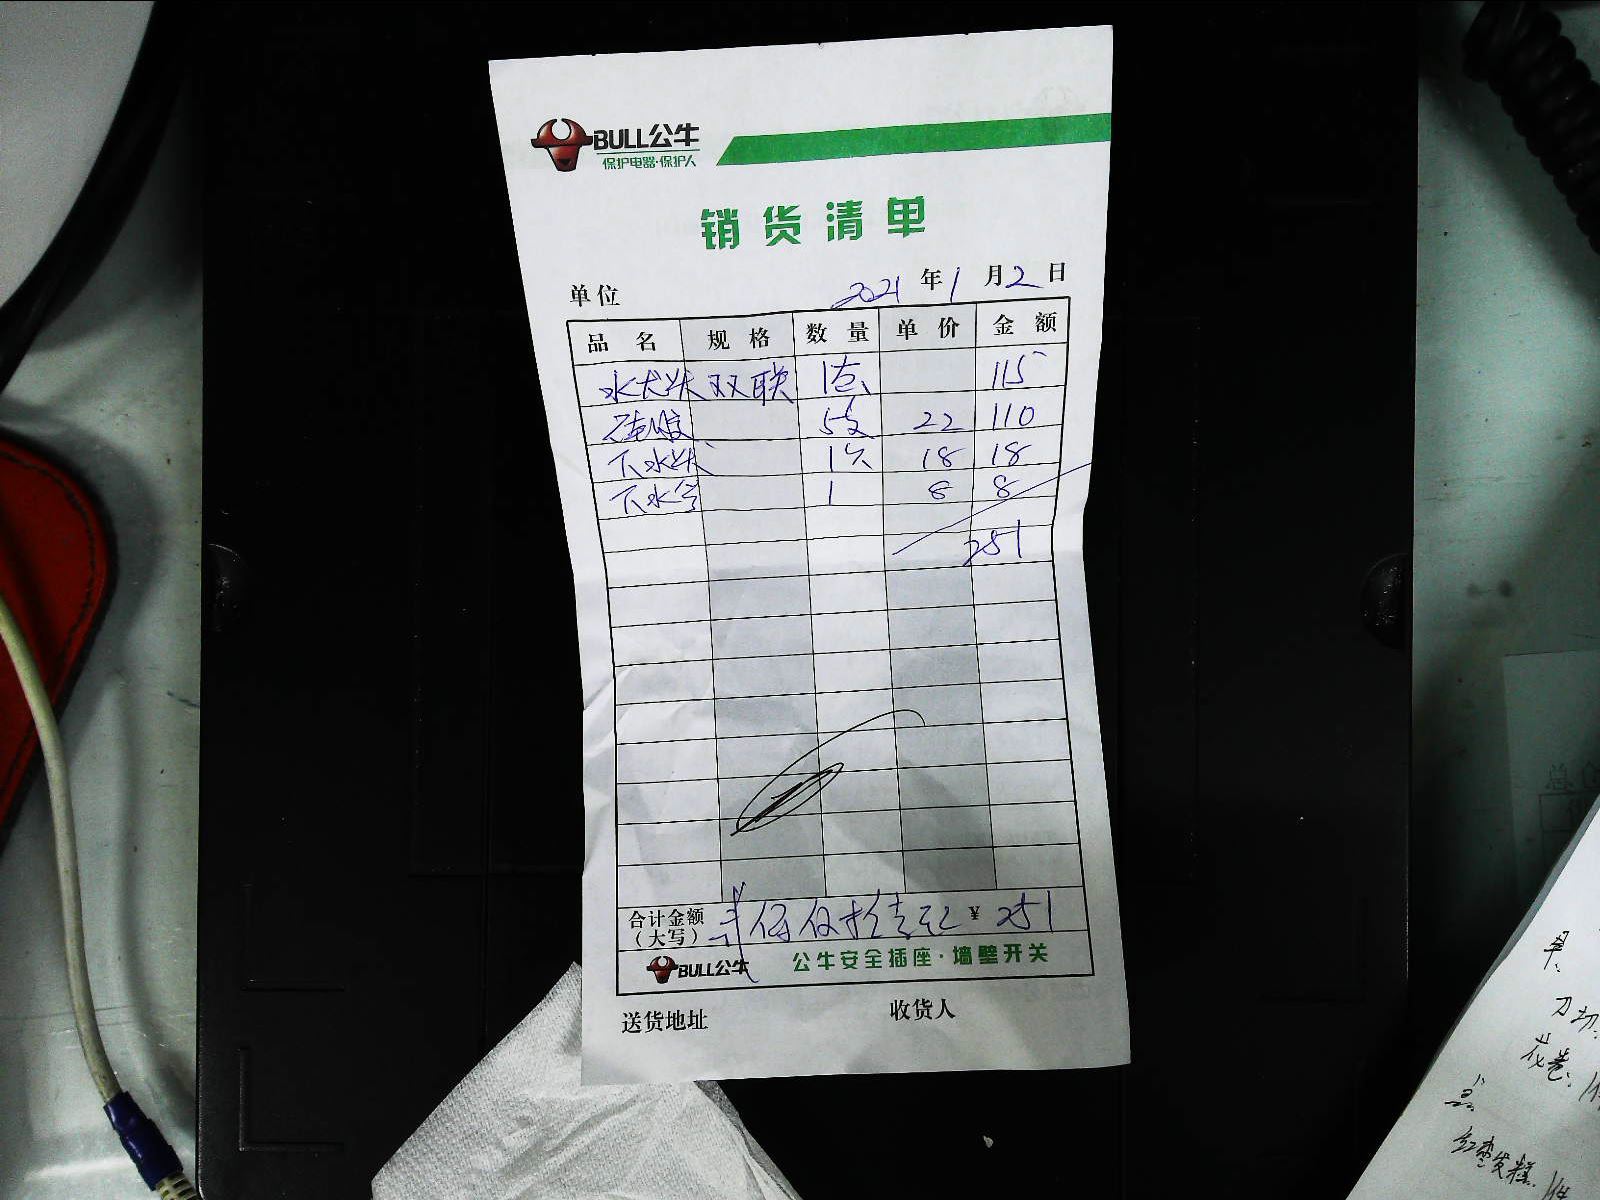 BULL公牛
保护电器·保护人
销货清单
单位 2021年1月2日
品名 规格 数量 单价 金额
水龙头 双联 1套 115
硅胶 5支 22 110
下水头 1个 18 18
下水管 1 8 8
251
合计金额（大写） 贰佰伍拾壹元 ¥ 251
BULL公牛 公牛安全插座·墙壁开关
送货地址 收货人
刀切
花卷
红枣发糕